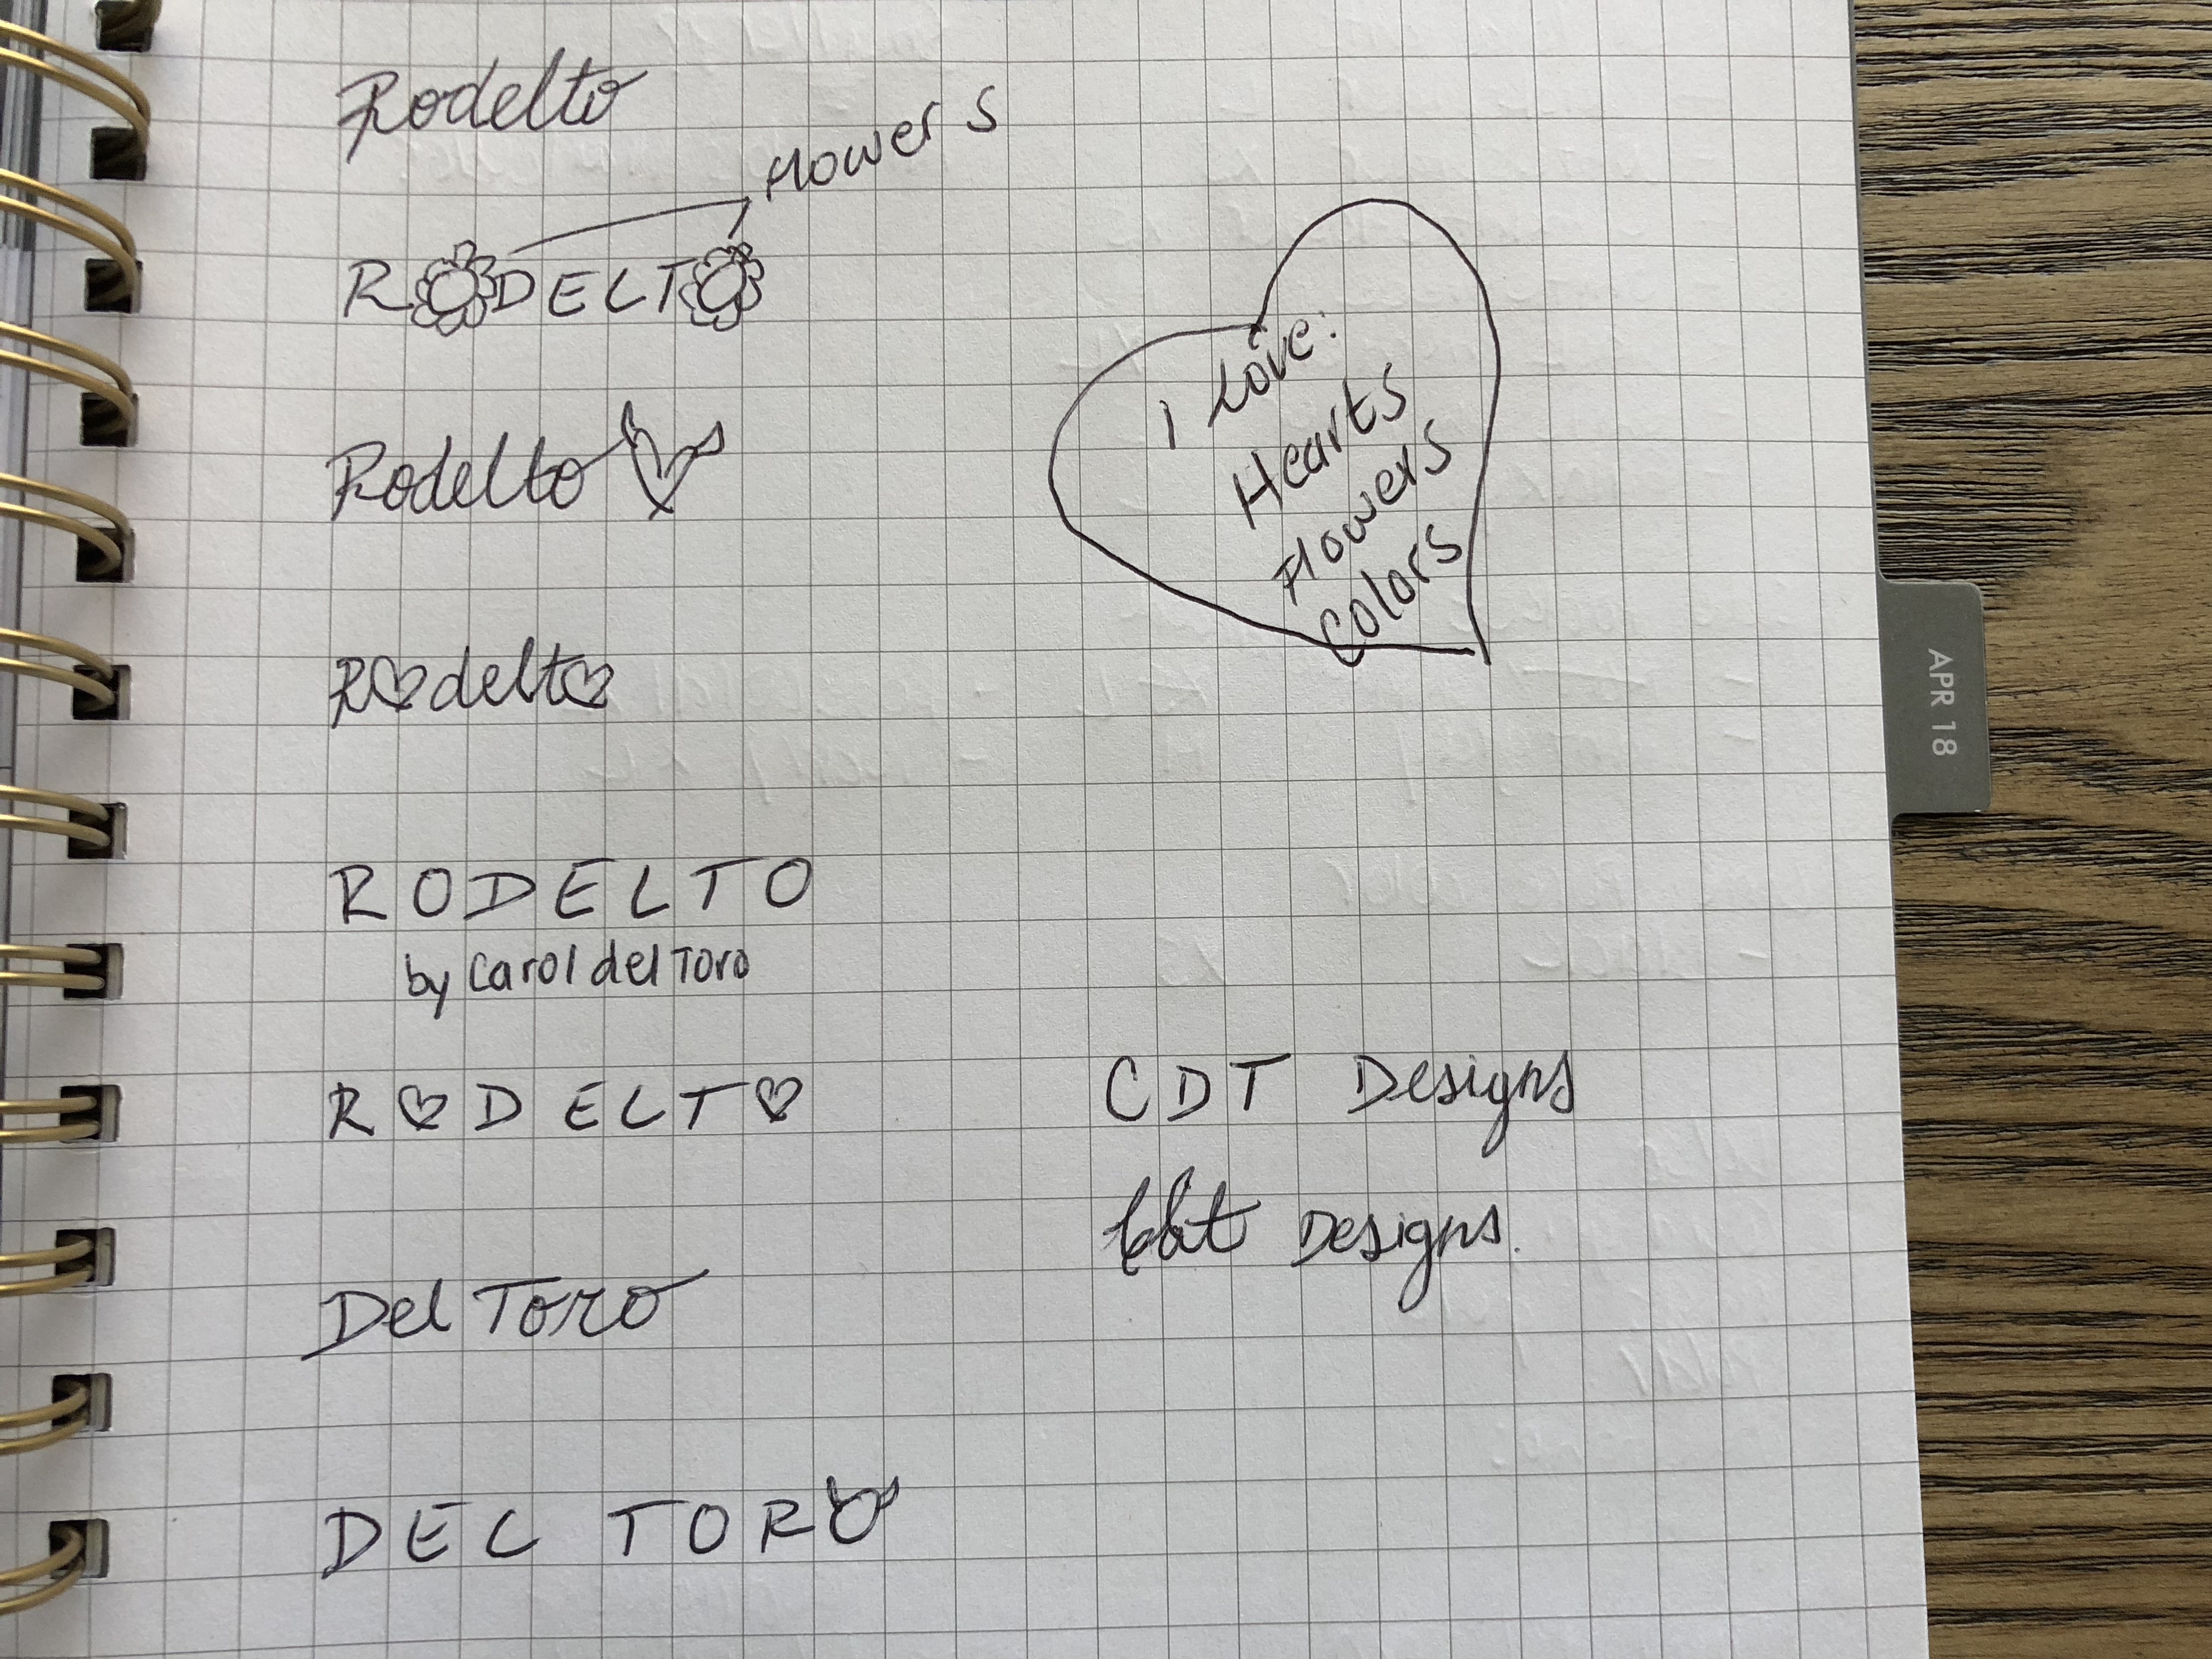 Rodelto
Flowers
RODELTO
Rodelto
I Love:
Hearts
Flowers
Colors
Rodelto
APR 18
RODELTO
by Carol del Toro
RODELTO
CDT Designs
cdt Designs.
Del Toro
DEL TORO